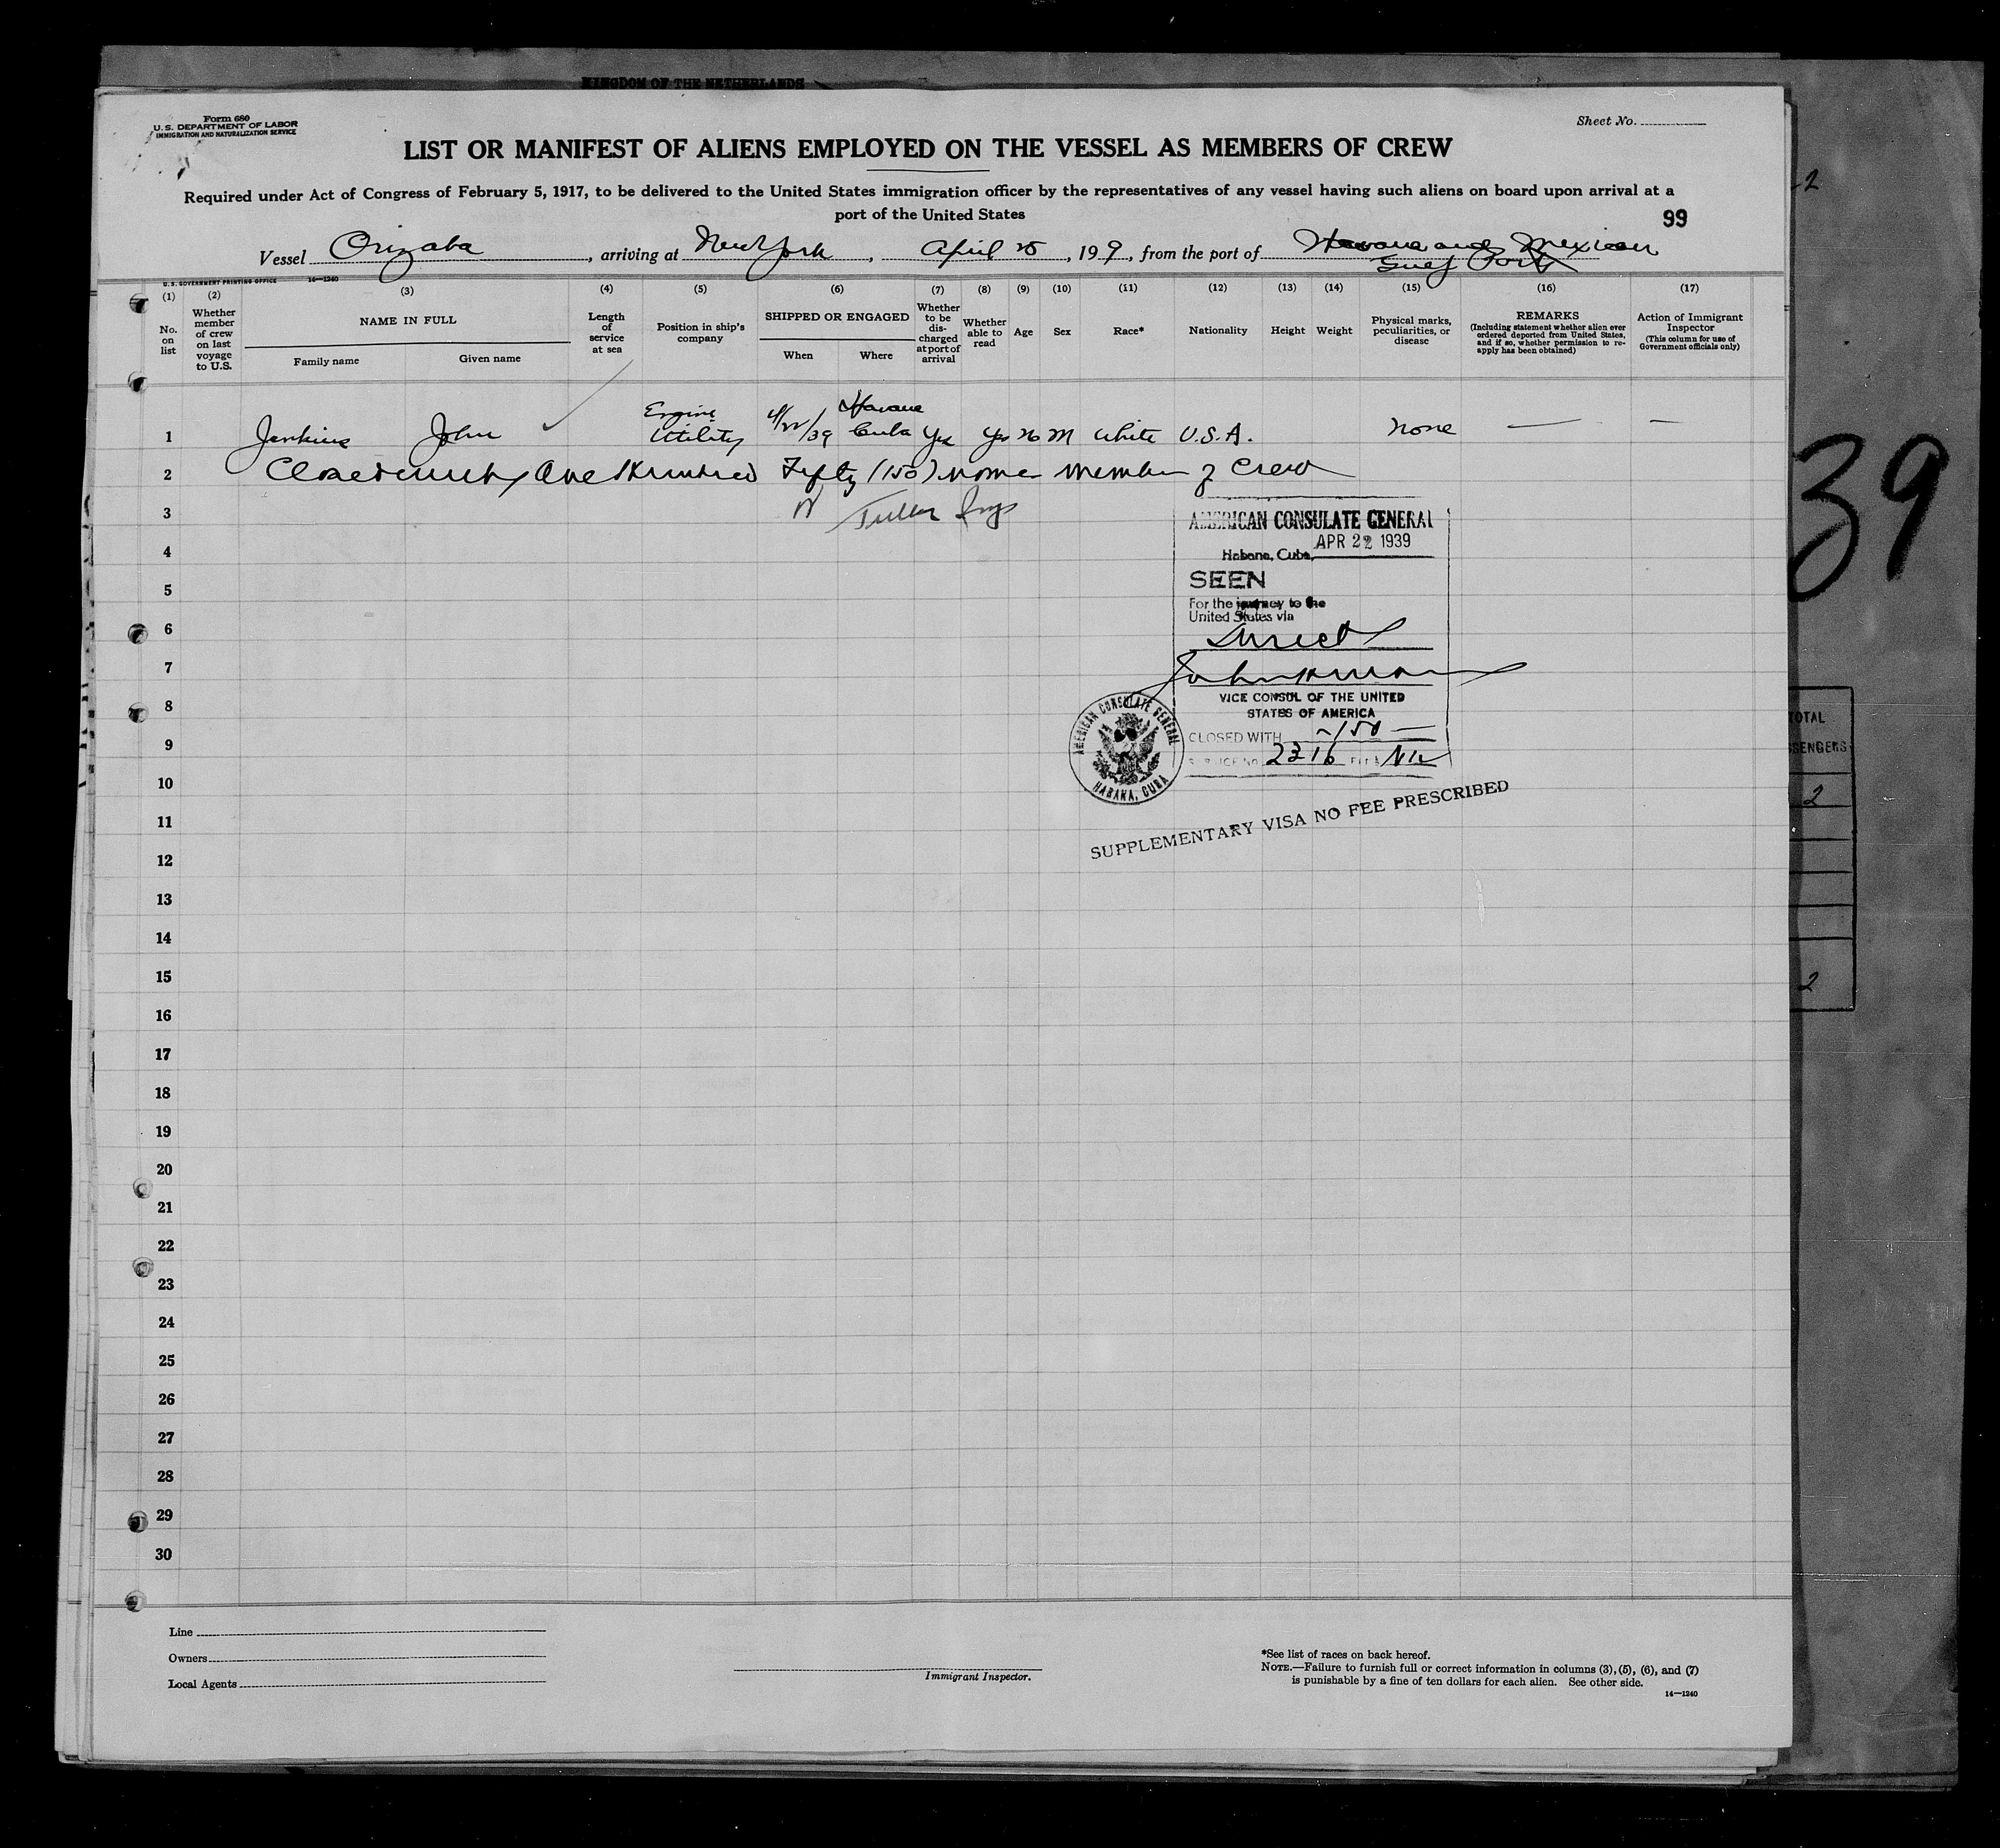 KINGDOM OF THE NETHERLANDS
Form 680
U.S. DEPARTMENT OF LABOR
IMMIGRATION AND NATURALIZATION SERVICE
Sheet No.
LIST OR MANIFEST OF ALIENS EMPLOYED ON THE VESSEL AS MEMBERS OF CREW
Required under Act of Congress of February 5, 1917, to be delivered to the United States immigration officer by the representatives of any vessel having such aliens on board upon arrival at a
port of the United States
99
Vessel Orizaba, arriving at New York, April 25, 199, from the port of Havana and Mexican
Gulf Ports
U.S. GOVERNMENT PRINTING OFFICE 14—1240
(1) (2) (3) (4) (5) (6) (7) (8) (9) (10) (11) (12) (13) (14) (15) (16) (17)
No. on list
Whether member of crew on last voyage to U.S.
NAME IN FULL
Family name Given name
Length of service at sea
Position in ship's company
SHIPPED OR ENGAGED
When Where
Whether to be discharged at port of arrival
Whether able to read
Age Sex Race* Nationality Height Weight
Physical marks, peculiarities, or disease
REMARKS
(Including statement whether alien ever ordered deported from United States, and if so, whether permission to reapply has been obtained)
Action of Immigrant Inspector
(This column for use of Government officials only)
1 Jenkins John Engine Utility 4/22/39 Havana Cuba Yes Yes 26 M White U.S.A. None — —
2 Closed with One Hundred Fifty (150) names members of Crew
3
AMERICAN CONSULATE GENERAL
Habana, Cuba, APR 22 1939
SEEN
For the journey to the
United States via
Direct
VICE CONSUL OF THE UNITED
STATES OF AMERICA
CLOSED WITH —150—
SERVICE No. 2216
AMERICAN CONSULATE GENERAL
HABANA, CUBA
SUPPLEMENTARY VISA NO FEE PRESCRIBED
4
5
6
7
8
9
10
11
12
13
14
15
16
17
18
19
20
21
22
23
24
25
26
27
28
29
30
Line
Owners
Local Agents
Immigrant Inspector.
*See list of races on back hereof.
NOTE.—Failure to furnish full or correct information in columns (3), (5), (6), and (7)
is punishable by a fine of ten dollars for each alien. See other side.
14—1240
39
TOTAL
2
2